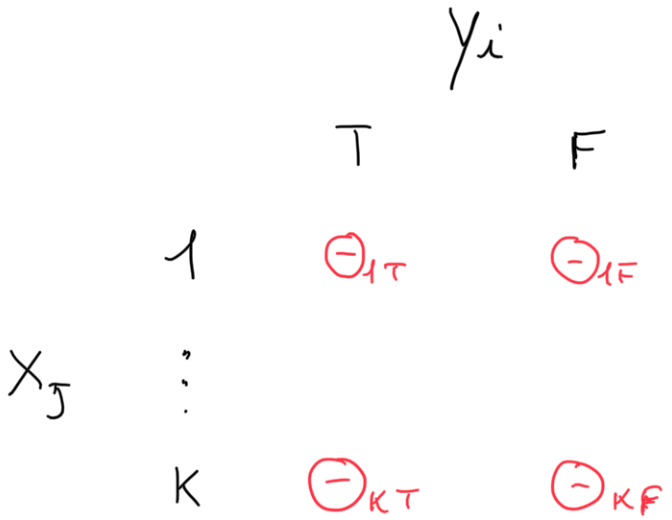 Yi
T F
1 Θ1T Θ1F
⋮
XJ
K ΘKT ΘKF